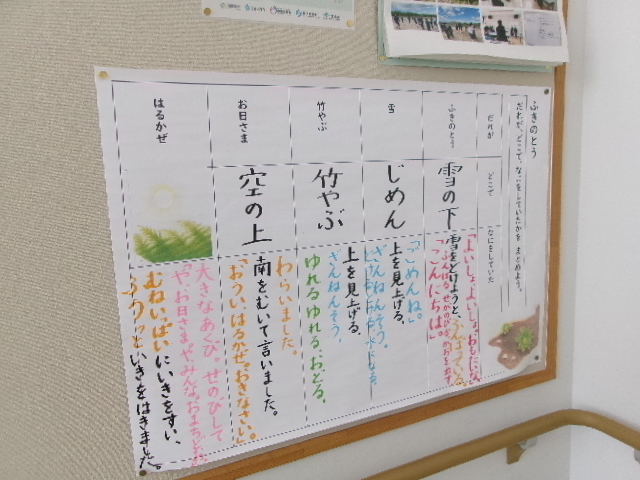 ふきのとう
だれが、どこで、なにをしていたかを まとめよう。
だれが
どこで
なにをしていた
ふきのとう。
雪の下
「よいしょ、よいしょ。おもたいな。」
雪をどけようと、ふんばっている。
ふんばる せのびする かおを出す
「こんにちは。」
雪
じめん
「ごめんね。」
上を見上げる。
ざんねんそう。
竹やぶ
竹やぶ
上を見上げる。
ざんねんそう。
ゆれるゆれる、おどる。
お日さま
空の上
わらいました。
南をむいて言いました。
「おうい、はるかぜ。おきなさい。」
はるかぜ
大きなあくび。せのびして
「や、お日さま。や、みんな。おまちどお。」
むねいっぱいにいきをすい、
ふうっといきをはきました。